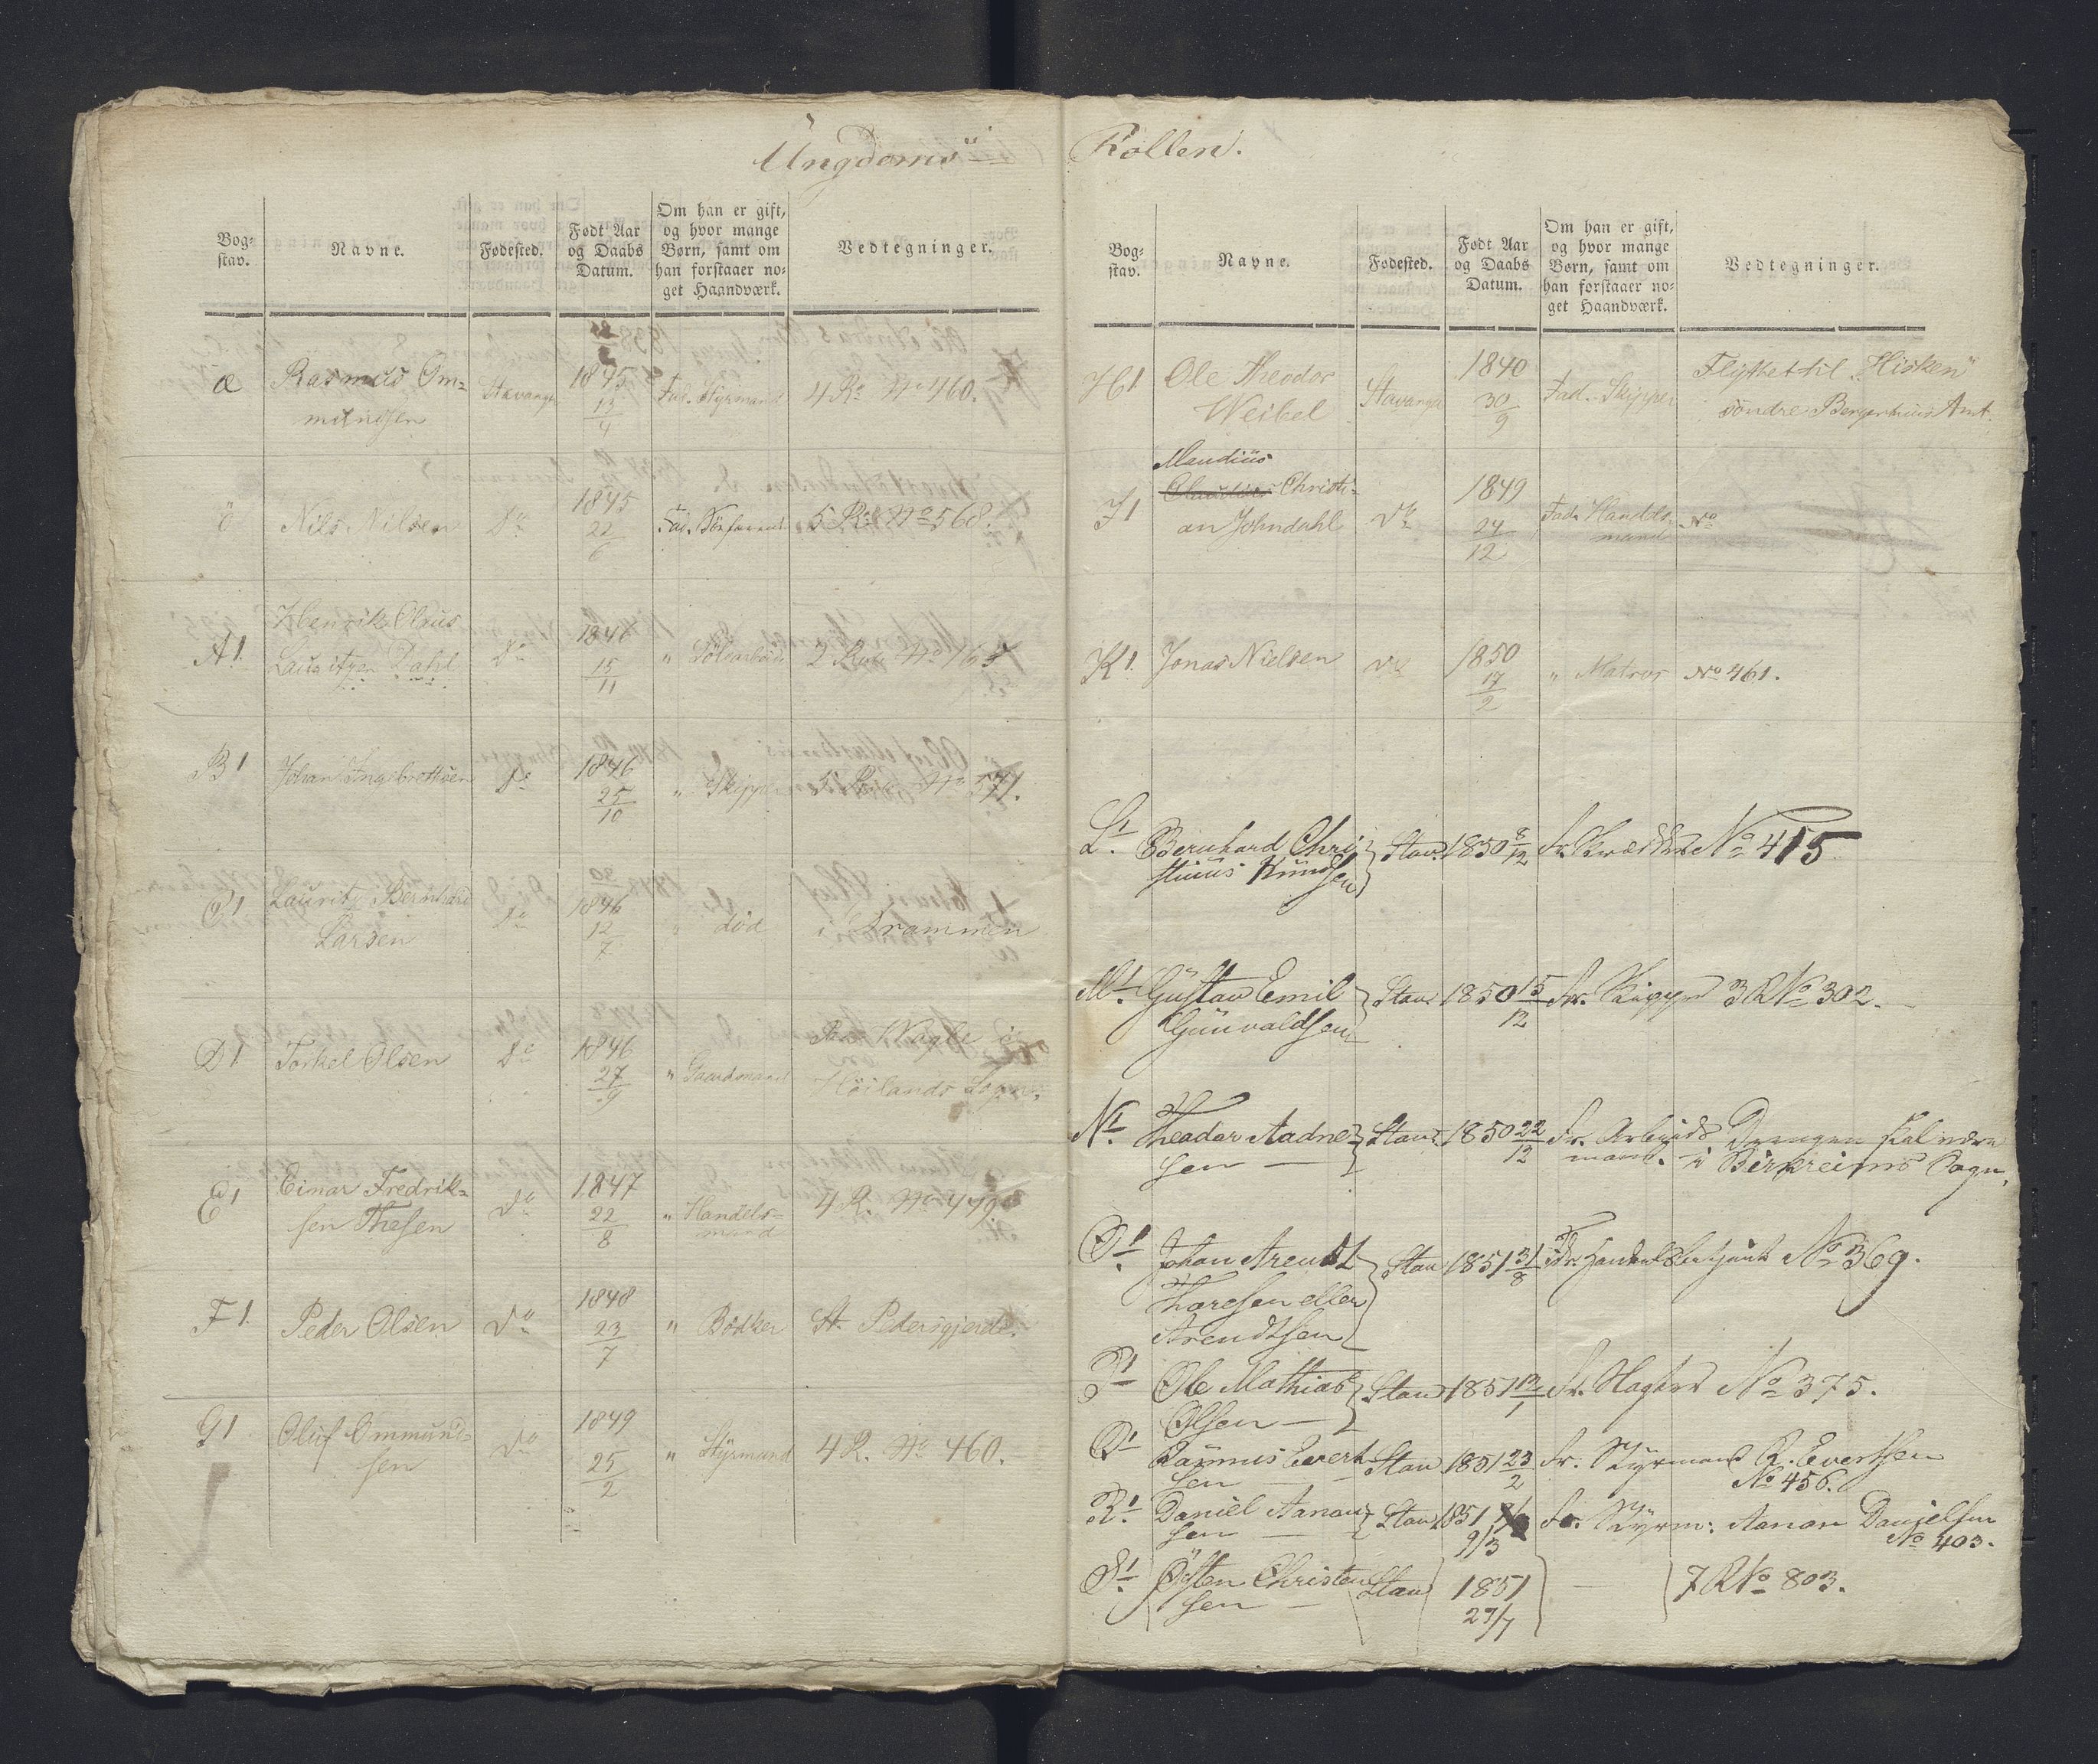 Ungdoms-
Bog-
stav.
Navne.
Fødested.
Født Aar
og Daabs
Datum.
Om han er gift,
og hvor mange
Børn, samt om
han forstaaer no-
get Haandværk.
Vedtegninger.
æ Rasmus Om- Stavanger 1845 Fad. Styrmand 4 R. No 460.
mundsen 13/4
ö Nils Nilsen Do 1845 Fad. 5 R. No 568.
22/6
A1 Henrik Claus Do 1846 "
Lauritzen Dahl 15/11
B1 Johan Ingebretsen Do 1846 " Skipper 5 R. No 571.
25/10
C1 Lauritz Bernhard Do 1846 " död i Drammen
Larsen 12/7
D1 Torkel Olsen Do 1846 " Gaardmand
27/9 Höilands Sogn.
E1 Einar Fredrik- Do 1847 " Handels- 4 R. No 479
sen Thesen 22/8 mand
F1 Peder Olsen Do 1848 " Bødker St. Pedersgjerde.
23/7
G1 Oluf Ommund- Do 1849 " Styrmand 4 R. No 460.
sen 25/2
Rollen.
Bog-
stav.
Navne.
Fødested.
Født Aar
og Daabs
Datum.
Om han er gift,
og hvor mange
Børn, samt om
han forstaaer no-
get Haandværk.
Vedtegninger.
H1 Ole Theodor Stavanger 1840 Fad. Skipper Flyttet til "Hisken"
Weibel 30/9 söndre Bergenhuus Amt.
Maudius
J1 Claudius Christi- Do 1849 Fad. Handels- No
an Johndahl 24/12 mand
K1 Jonas Nielsen Do 1850 " Matros No 461.
17/2
L1. Bernhard Chri- Stav. 1850 8/12 Fr. No 415
stinus Knudsen
M1. Gustav Emil Stav. 1850 15/12 Fr. Skipper 3 R No 302.
Gunvaldsen
N1. Theodor Aadne- Stav. 1850 22/12 Fr. Arbejds- Drengen skal være
sen mand. i Birkreims Sogn.
O1. Johan Arendt Stav 1851 31/8 Fr. No 369.
Thoresen eller
Arendtsen
P1 Ole Mathias Stav 1851 12/1 Fr. No 375.
Olsen
Q1 Rasmus Evert- Stav 1851 23/2 Fr. Styrmand R. Evertsen
sen No 456.
R1. Daniel Aanon- Stav 1851 Fr. Styrm: Aanon Danielsen
sen 9/3 No 403.
S1. Östen Christen- Stav 1851 7 R No 803.
sen 27/7